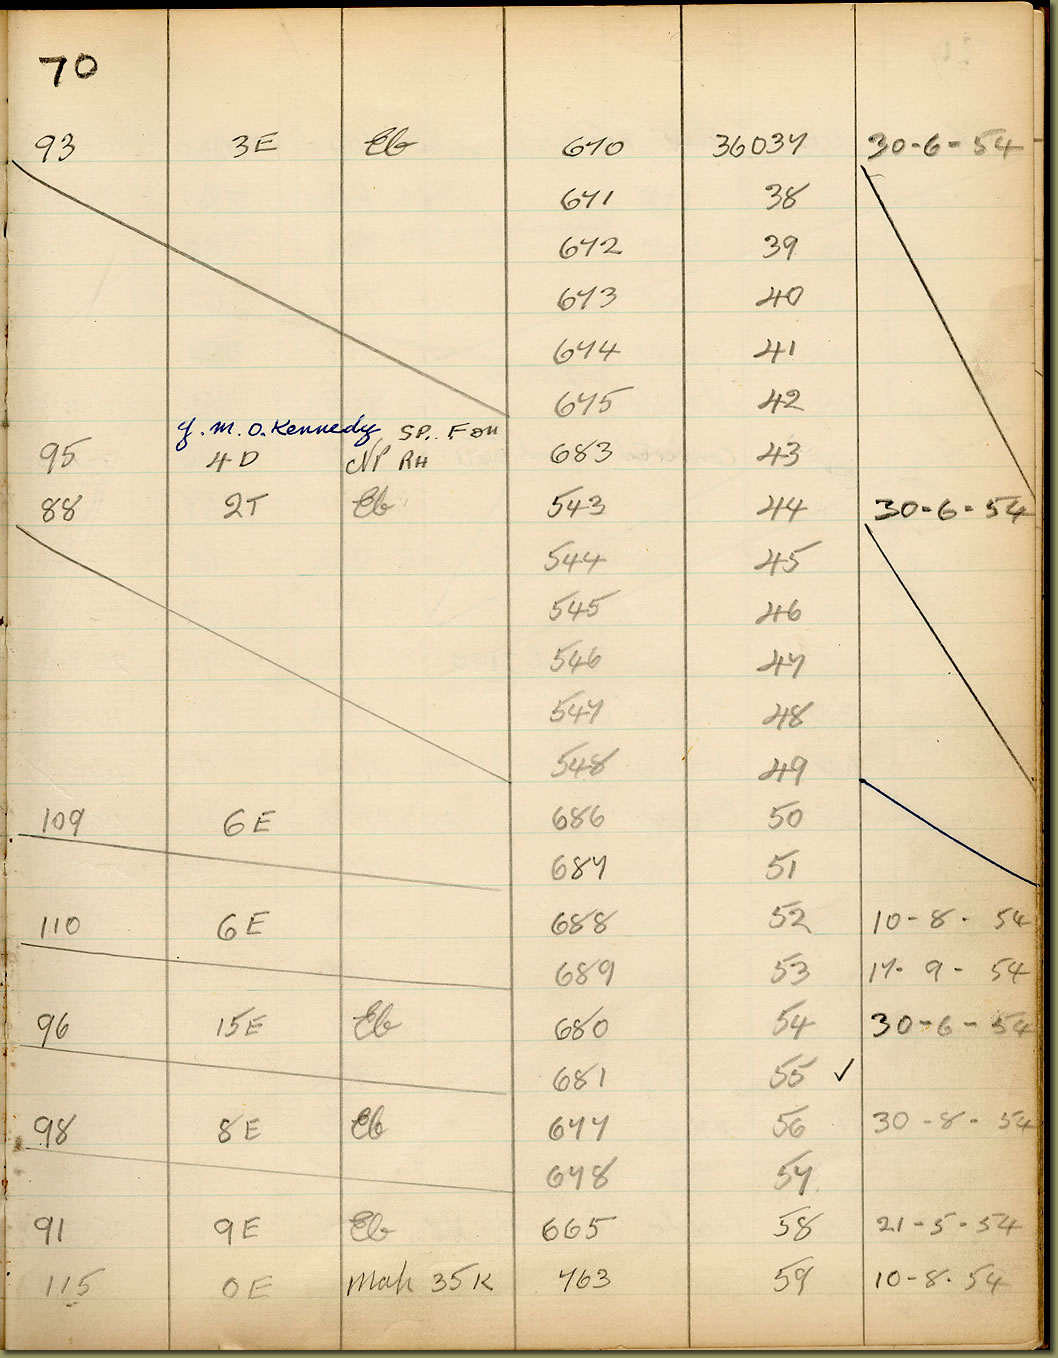 70
93 3E Eb 670 36037 30-6-54
671 38
672 39
673 40
674 41
675 42
J. M. O. Kennedy SP. F on
95 4D NP RH 683 43
88 2T Eb 543 44 30-6-54
544 45
545 46
546 47
547 48
548 49
109 6E 686 50
687 51
110 6E 688 52 10-8-54
689 53 17-9-54
96 15E Eb 680 54 30-6-54
681 55 ✓
98 8E Eb 677 56 30-8-54
678 57
91 9E Eb 665 58 21-5-54
115 0E Mah 35K 763 59 10-8-54